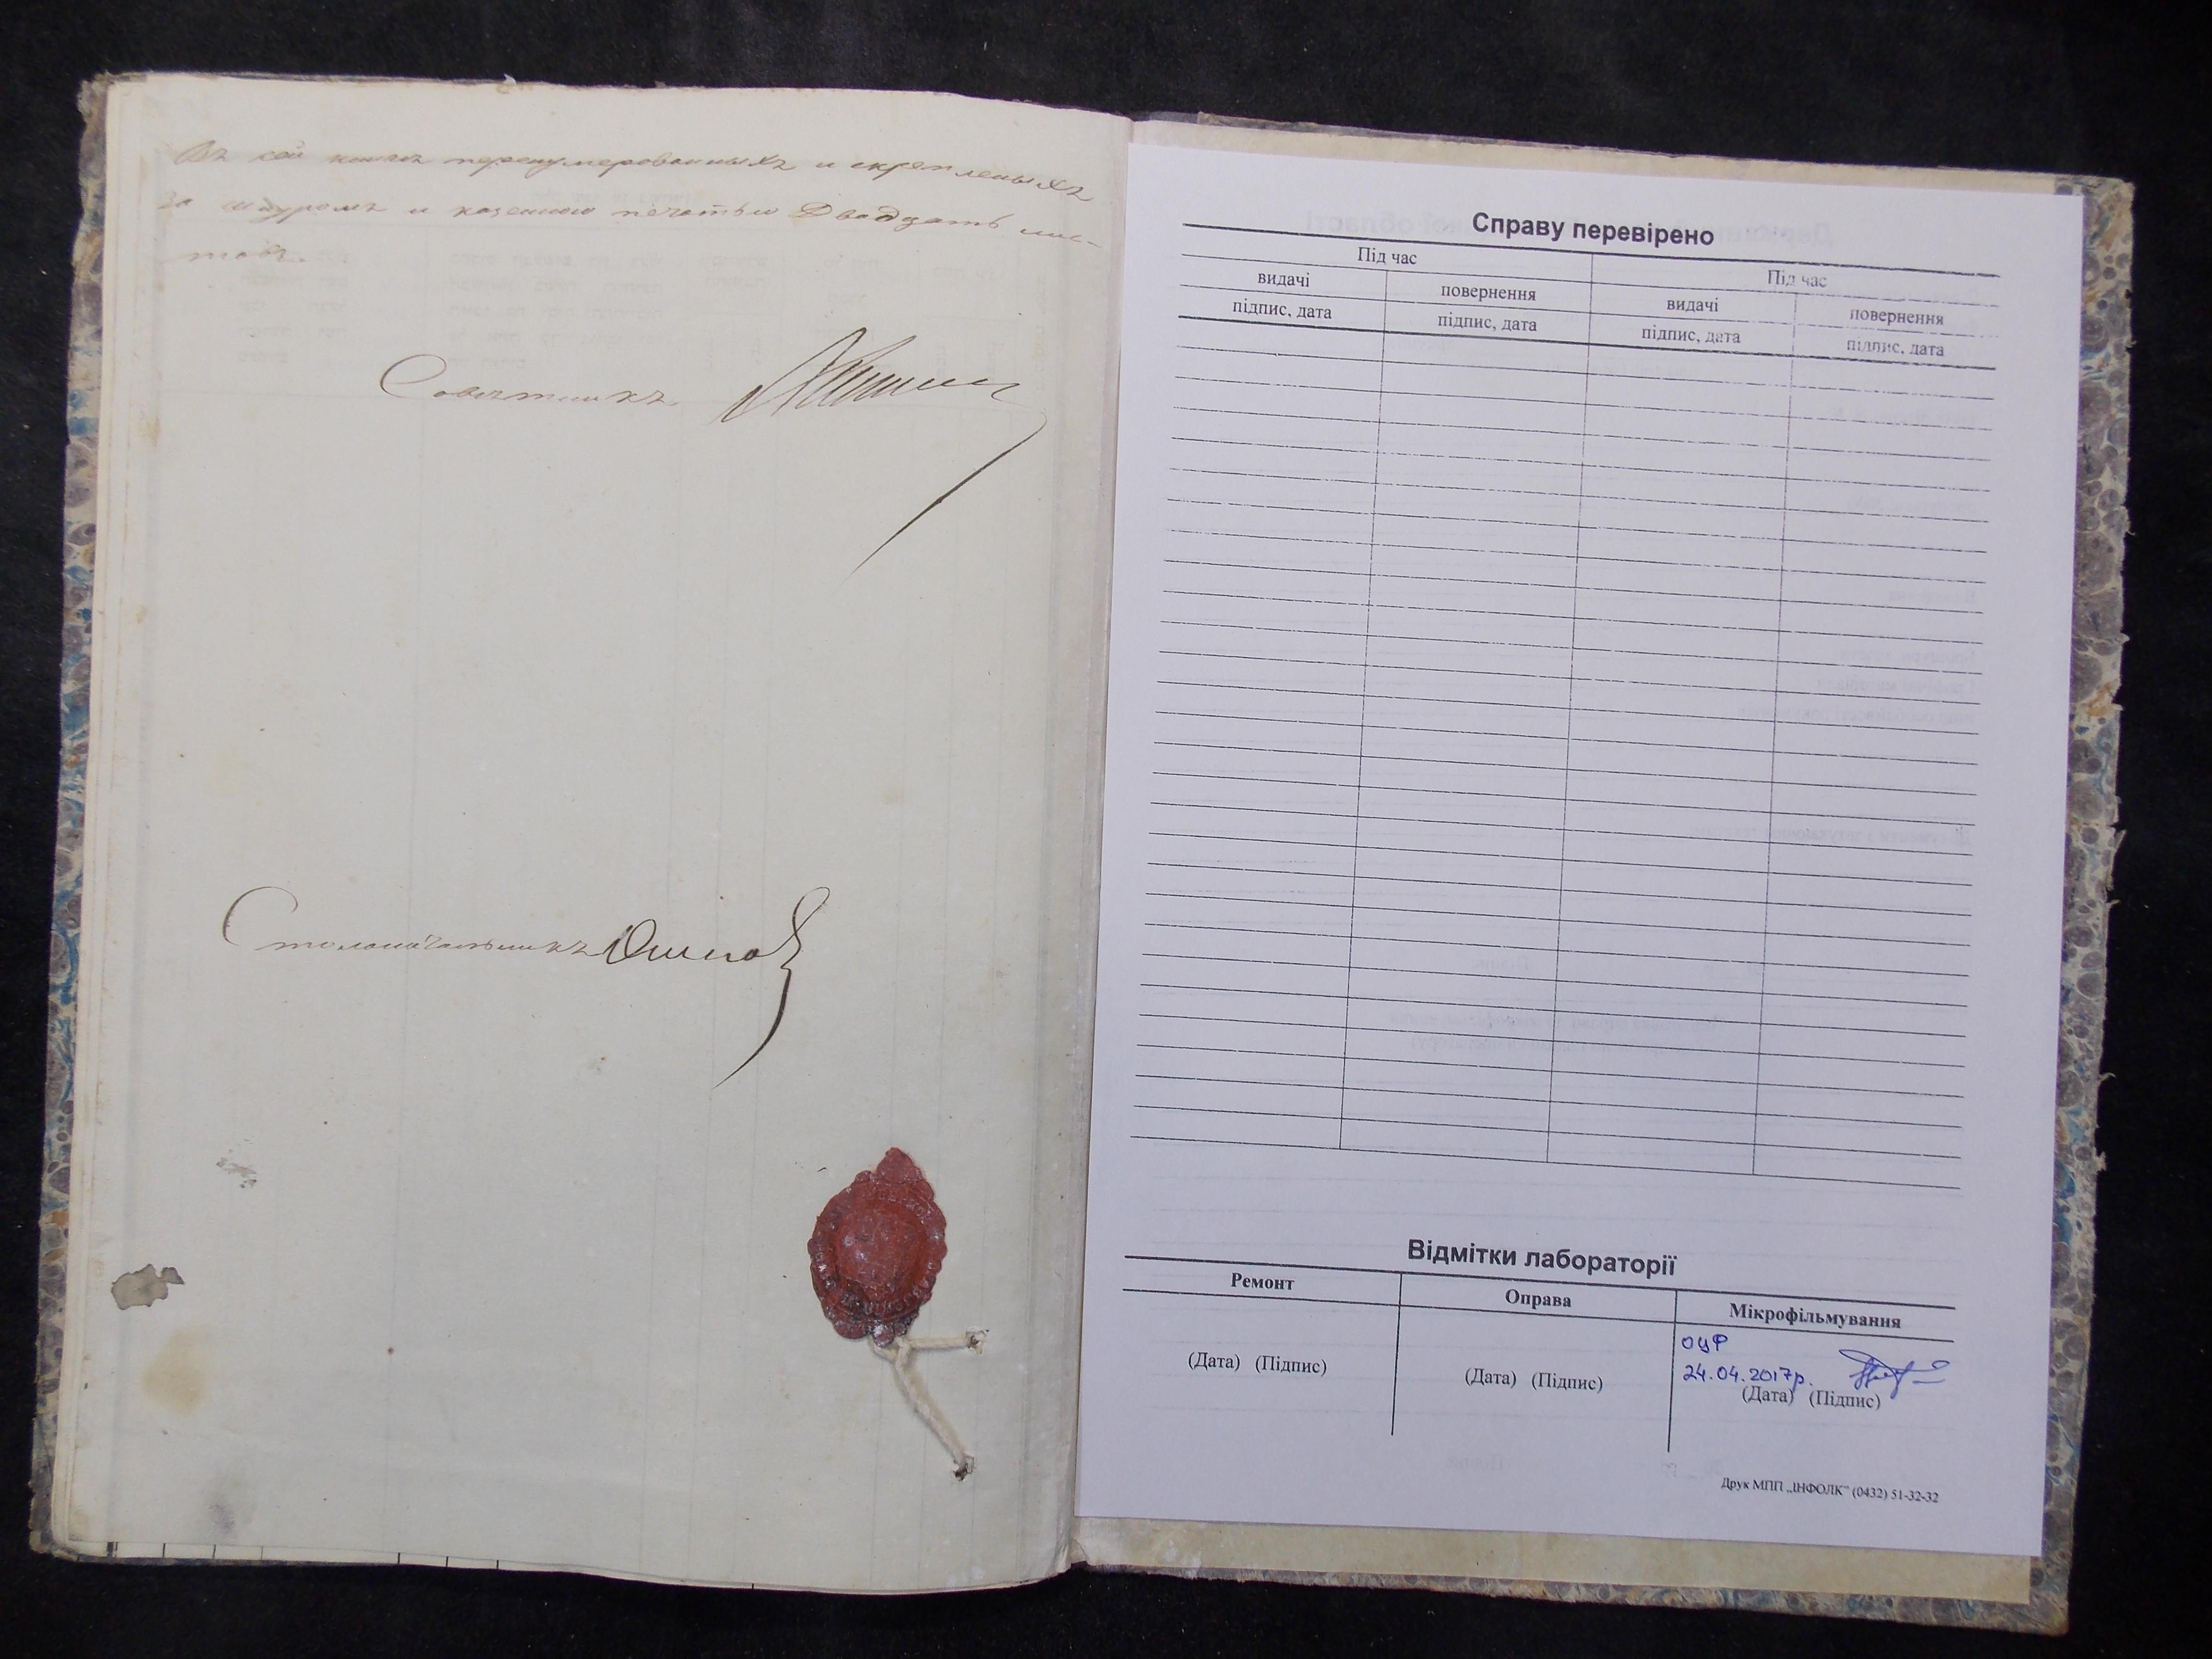 Въ сей книгѣ перенумерованныхъ и скрепленыхъ
за шнуромъ и казенною печатью Двадцать лис-
товъ.
Совѣтникъ
Столоначальникъ
Справу перевірено
Під час Під час
видачі повернення видачі повернення
підпис, дата підпис, дата підпис, дата підпис, дата
Відмітки лабораторії
Ремонт Оправа Мікрофільмування
ОЦФ
24.04.2017р.
(Дата) (Підпис) (Дата) (Підпис) (Дата) (Підпис)
Друк МПП „ІНФОЛК" (0432) 51-32-32